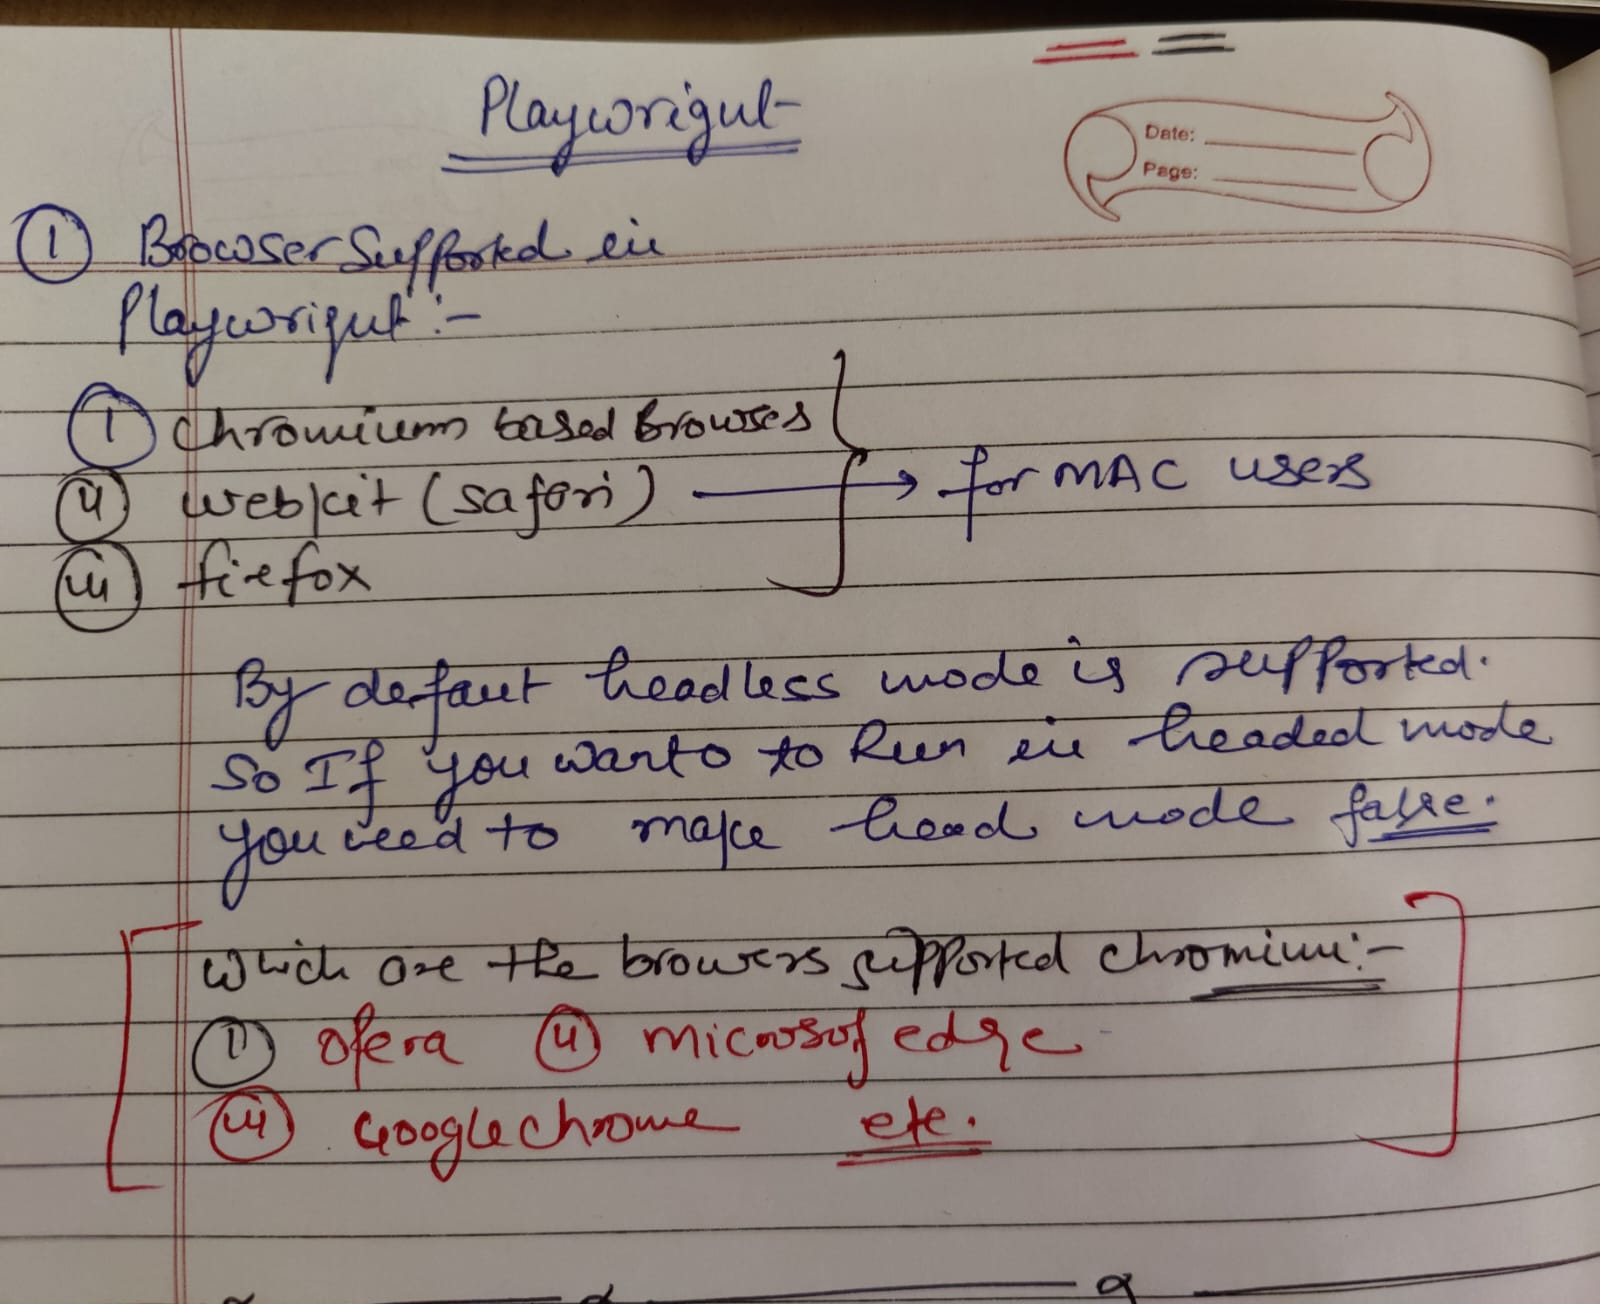 Playwright
Date:
Page:
① Browser Supported in
Playwright :-
① chromium based Browses
② webkit (safari) → for MAC users
③ firefox
By defaut headless mode is supported.
So If you wanto to Run in headed mode
you need to make head mode false.
which are the browers supported chromium:-
① opera ② microsof edge
③ Google chrome etc.